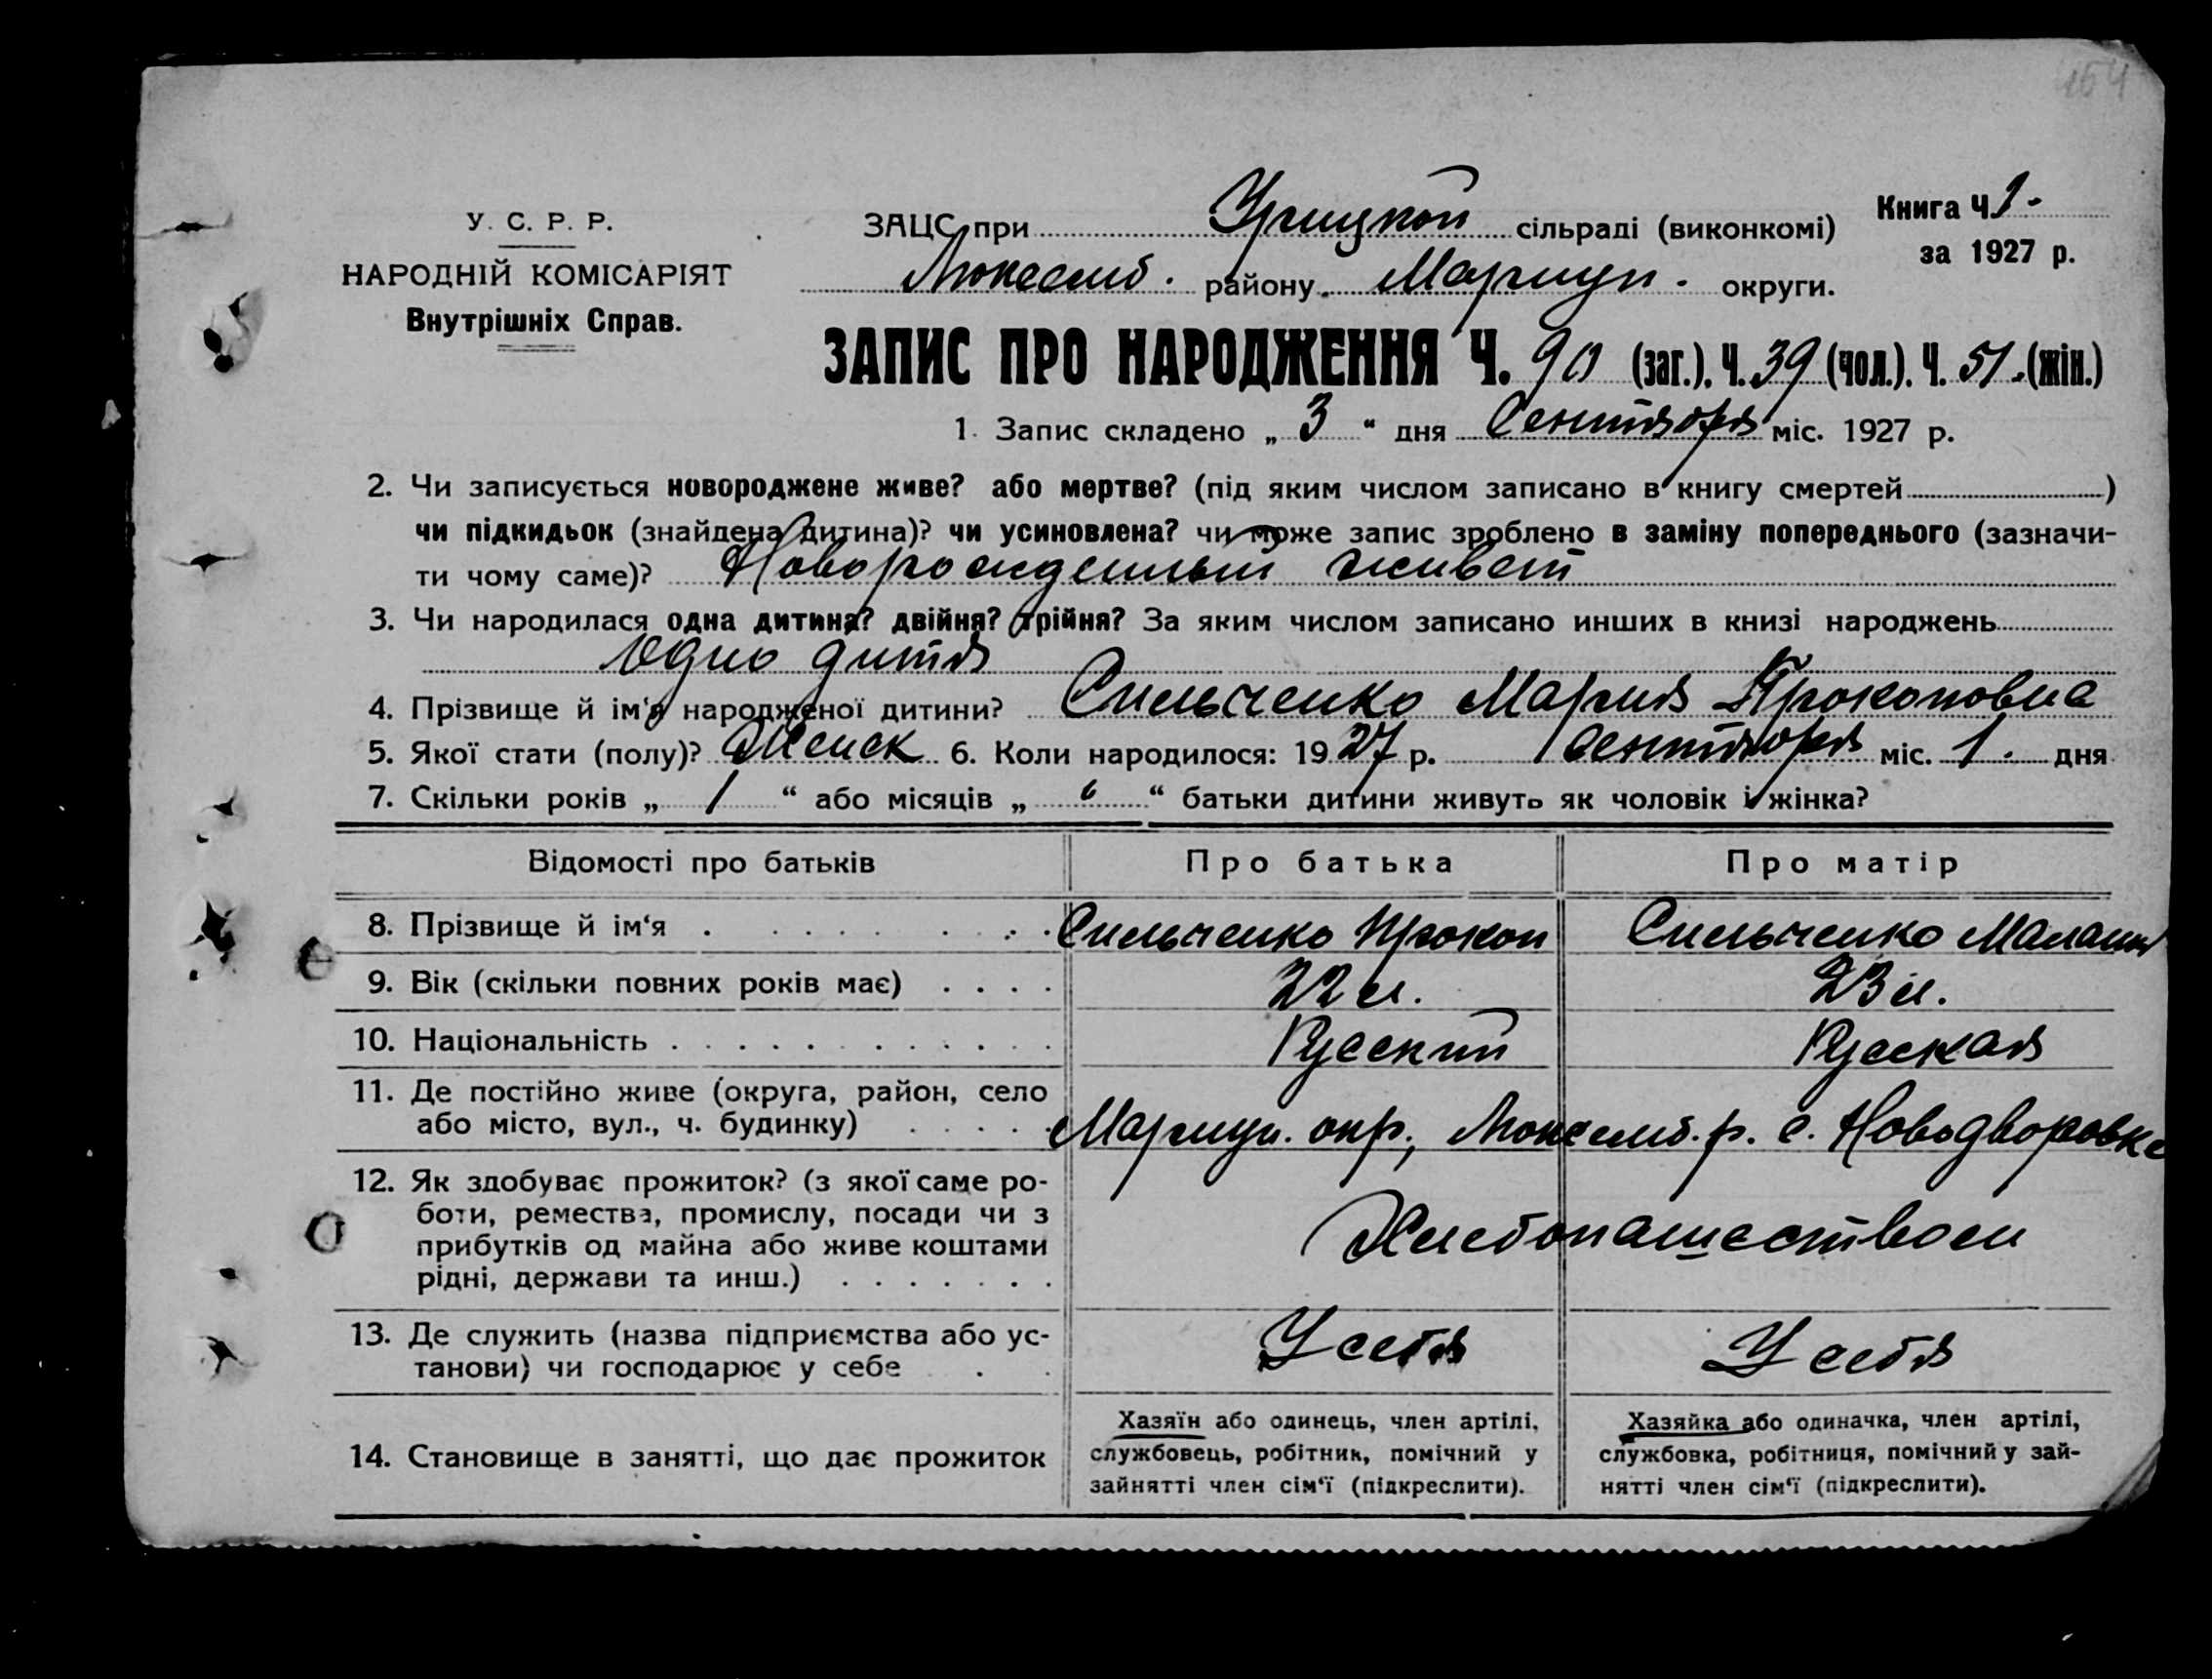 154
У. С. Р. Р.
НАРОДНІЙ КОМІСАРІЯТ
Внутрішніх Справ.
ЗАЦС при Урицкой сільраді (виконкомі)
Люксемб. району Мариуп. округи.
Книга Ч 1.
за 1927 р.
ЗАПИС ПРО НАРОДЖЕННЯ Ч. 90 (заг.). Ч. 39 (чол.). Ч. 51. (жін.)
1. Запис складено „ 3 “ дня Сентября міс. 1927 р.
2. Чи записується новороджене живе? або мертве? (під яким числом записано в книгу смертей )
чи підкидьок (знайдена дитина)? чи усиновлена? чи може запис зроблено в заміну попереднього (зазначи-
ти чому саме)? Новорожденный живет
3. Чи народилася одна дитина? двійня? трійня? За яким числом записано инших в книзі народжень
Одно дитя
4. Прізвище й ім'я народженої дитини? Сильченко Мария Прокоповна
5. Якої стати (полу)? Женск 6. Коли народилося: 1927 р. Сентября міс. 1. дня
7. Скільки років „ 1 “ або місяців „ “ батьки дитини живуть як чоловік і жінка?
Відомості про батьків Про батька Про матір
8. Прізвище й ім‘я Сильченко Прокоп Сильченко Малання
9. Вік (скільки повних років має) 22 л. 23 л.
10. Національність Русский Русская
11. Де постійно живе (округа, район, село
або місто, вул., ч. будинку) Мариуп. окр., Люксемб. р. с. Новодворовке
12. Як здобуває прожиток? (з якої саме ро-
боти, ремества, промислу, посади чи з
прибутків од майна або живе коштами
рідні, держави та инш.) Хлебопашеством
13. Де служить (назва підприємства або ус-
танови) чи господарює у себе У себя У себя
14. Становище в занятті, що дає прожиток
Хазяїн або одинець, член артілі,
службовець, робітник, помічний у
зайнятті член сім‘ї (підкреслити).
Хазяйка або одиначка, член артілі,
службовка, робітниця, помічний у зай-
нятті член сім‘ї (підкреслити).